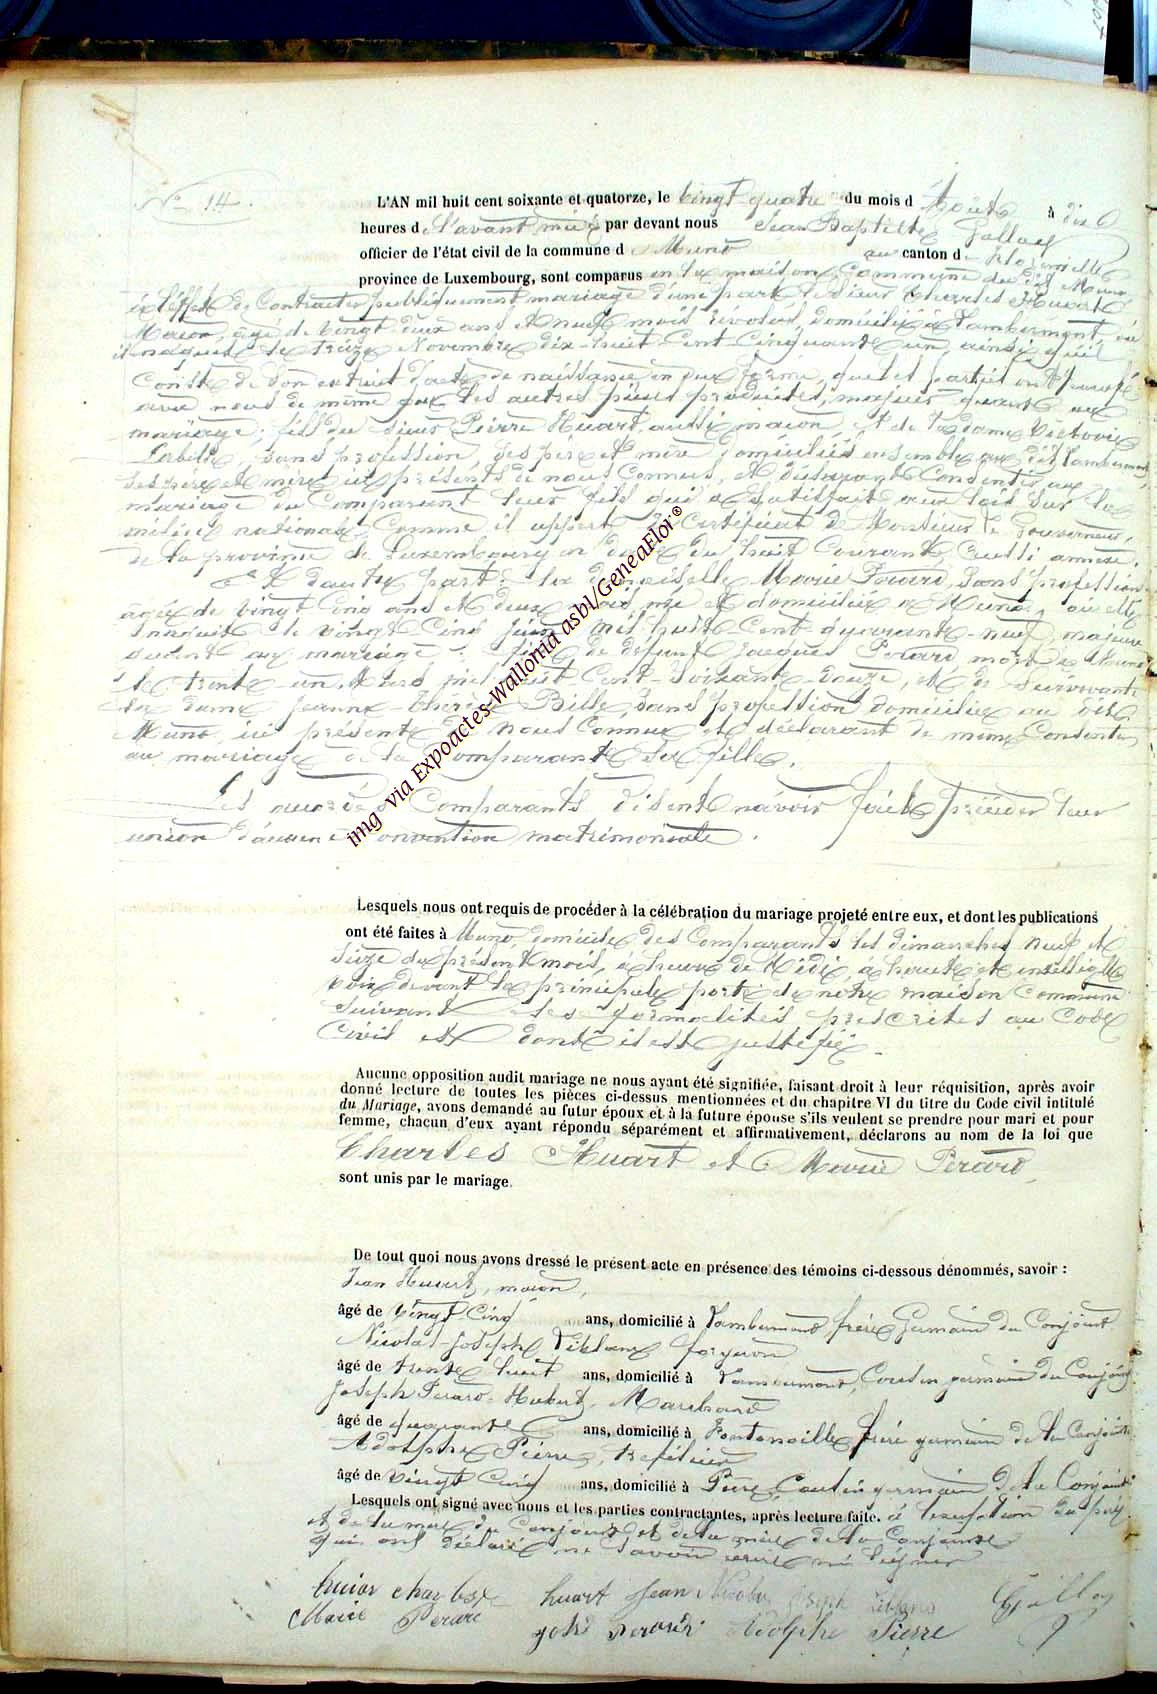 N° 14.
L'AN mil huit cent soixante et quatorze, le vingt quatre du mois d'Août à dix
heures de l'avant midi par devant nous Jean Baptiste Galloy
officier de l'état civil de la commune de Muno au canton de Florenville
province de Luxembourg, sont comparus en la maison commune du dit Muno,
à l'effet de contracter publiquement mariage d'une part le sieur Charles Huart
Maçon, âgé de vingt deux ans et neuf mois révolus, domicilié à Lambermont, où
il naquit le treize Novembre dix-huit-cent-cinquante un, ainsi qu'il
conste de son extrait d'acte de naissance en due forme, que les parties ont
avec nous de même que les autres pièces produites, majeur quant au
mariage; fils du sieur Pierre Huart, aussi maçon, et de la dame Victorie
sans profession, ses père et mère domiciliés ensemble au dit Lambermont
ses père et mère ici présents de nous connus, et déclarant consentir au
mariage du comparant leur fils qui a satisfait aux lois sur la
milice nationale, comme il appert du certificat de Monsieur le Gouverneur
de la province de Luxembourg en date du huit courant, aussi annexé.
Et d'autre part: la demoiselle Marie Perard, sans profession
âgée de vingt cinq ans et deux mois, née et domiciliée à Muno, où elle
naquit le vingt-cinq juin mil huit-cent-quarante-neuf, majeure
quant au mariage: fille de défunt Jacques Perard, mort à Muno
le trente un Mars mil huit cent-soixante-douze, et de survivante
la dame Jeanne-Thérèse Bille, sans profession, domiciliée au dit
Muno, ici présente de nous connue et déclarant de même consentir
au mariage de la comparante sa fille.
Les comparants disent n'avoir fait précéder leur
union d'aucune convention matrimoniale.
img via Expoactes-Wallonia asbl/GeneaFloi®
Lesquels nous ont requis de procéder à la célébration du mariage projeté entre eux, et dont les publications
ont été faites à Muno, domicile des comparants les dimanches neuf et
seize du présent mois, à heure de Midi, à haute et intelligible
voix devant la principale porte de notre maison commune
suivant les formalités prescrites au Code
Civil et dont il est justifié.
Aucune opposition audit mariage ne nous ayant été signifiée, faisant droit à leur réquisition, après avoir
donné lecture de toutes les pièces ci-dessus mentionnées et du chapitre VI du titre du Code civil intitulé
du Mariage, avons demandé au futur époux et à la future épouse s'ils veulent se prendre pour mari et pour
femme, chacun d'eux ayant répondu séparément et affirmativement, déclarons au nom de la loi que
Charles Huart et Marie Perard,
sont unis par le mariage.
De tout quoi nous avons dressé le présent acte en présence des témoins ci-dessous dénommés, savoir :
Jean Huart, maçon,
âgé de vingt cinq ans, domicilié à Lambermont frère Germain du Conjoint
Nicolas Joseph forgeron
âgé de trente huit ans, domicilié à Lambermont, Cousin germain du Conjoint
Joseph Perard Hubert, Marchand
âgé de quarante ans, domicilié à Fontenoille, frère germain de la Conjointe
Adolphe Pierre,
âgé de vingt cinq ans, domicilié à Pure, Cousin germain de la Conjointe
Lesquels ont signé avec nous et les parties contractantes, après lecture faite. à l'exception du père
et de la mère du Conjoint et de la mère de la Conjointe
qui ont déclaré ne savoir écrire ni signer
charles huart Jean Nicolas Joseph Galloy
Marie Perard Adolphe Pierre